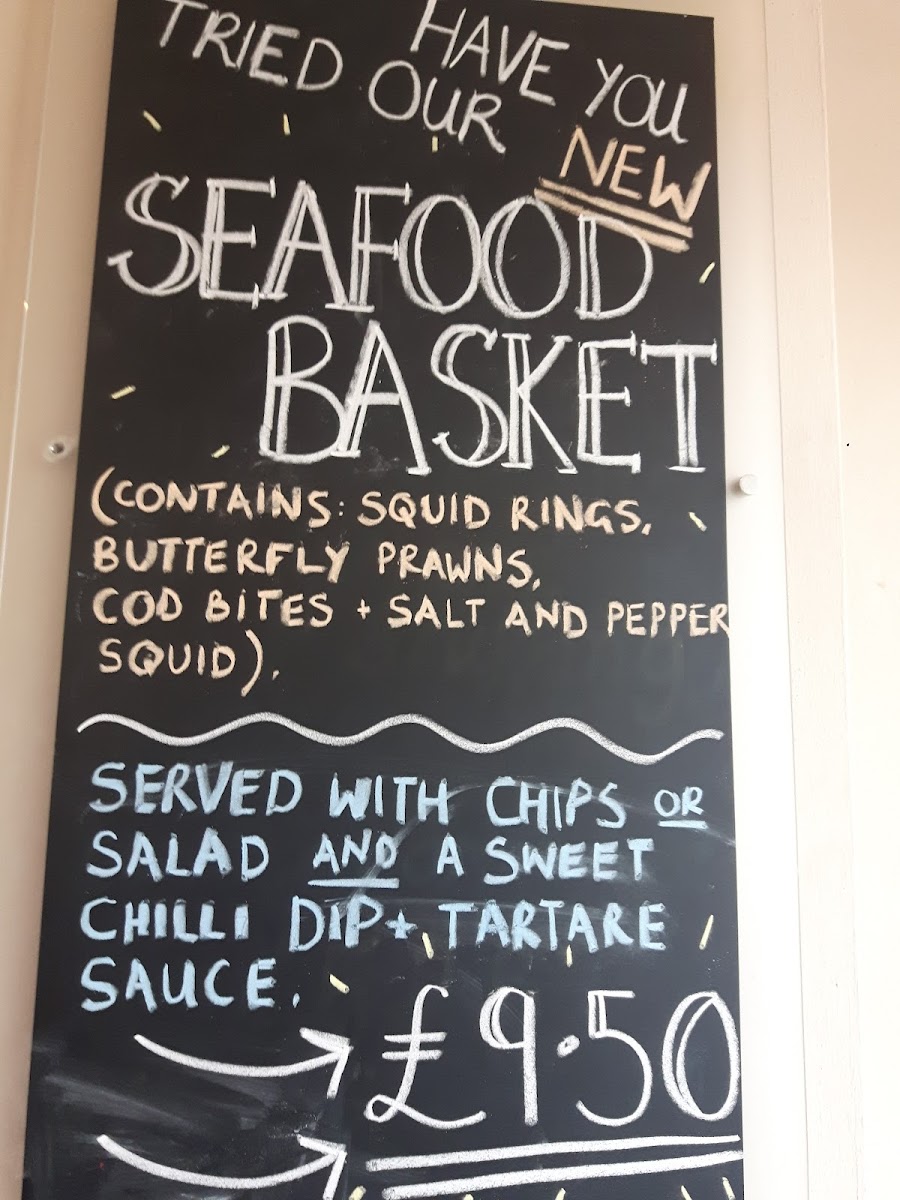 HAVE YOU
TRIED OUR
NEW
SEAFOOD
BASKET
(CONTAINS: SQUID RINGS,
BUTTERFLY PRAWNS,
COD BITES + SALT AND PEPPER
SQUID).
SERVED WITH CHIPS OR
SALAD AND A SWEET
CHILLI DIP + TARTARE
SAUCE.
£9.50